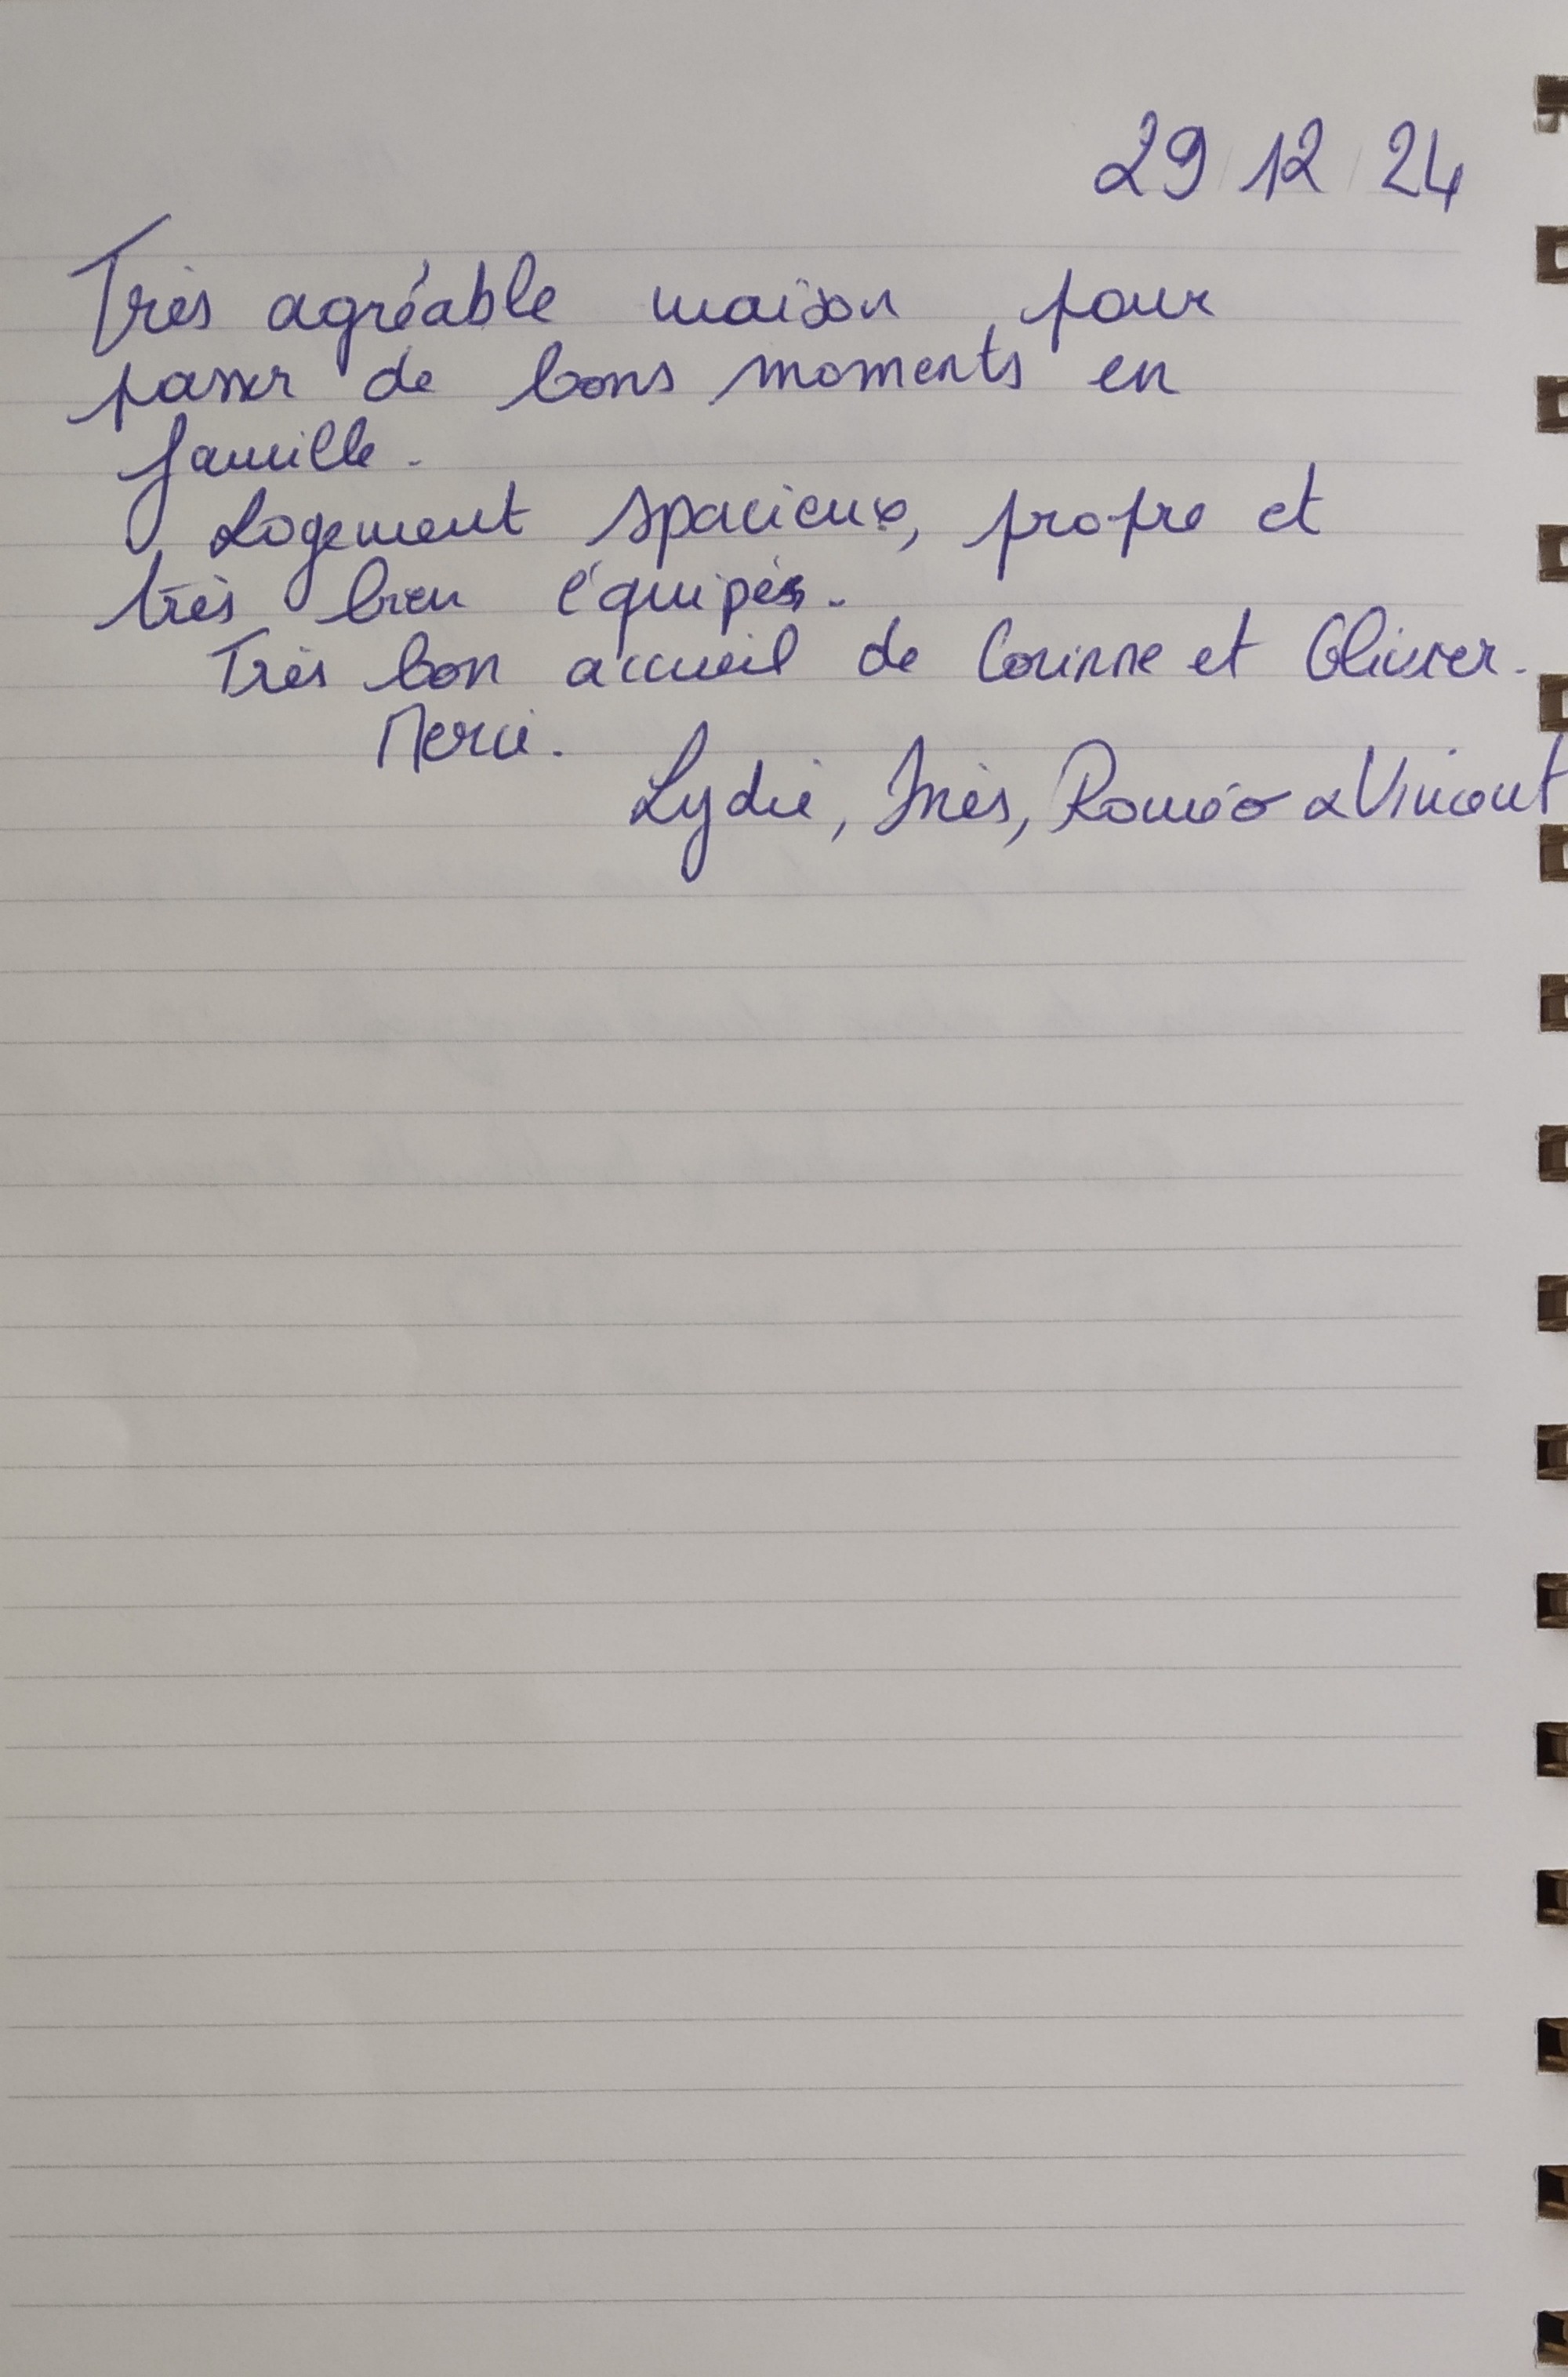 29 12 24
Très agréable maison, pour
passer de bons moments en
famille.
Logement spacieux, propre et
très bien équipés.
Très bon accueil de Corinne et Olivier.
Merci.
Lydie, Inès, Roméo & Vincent